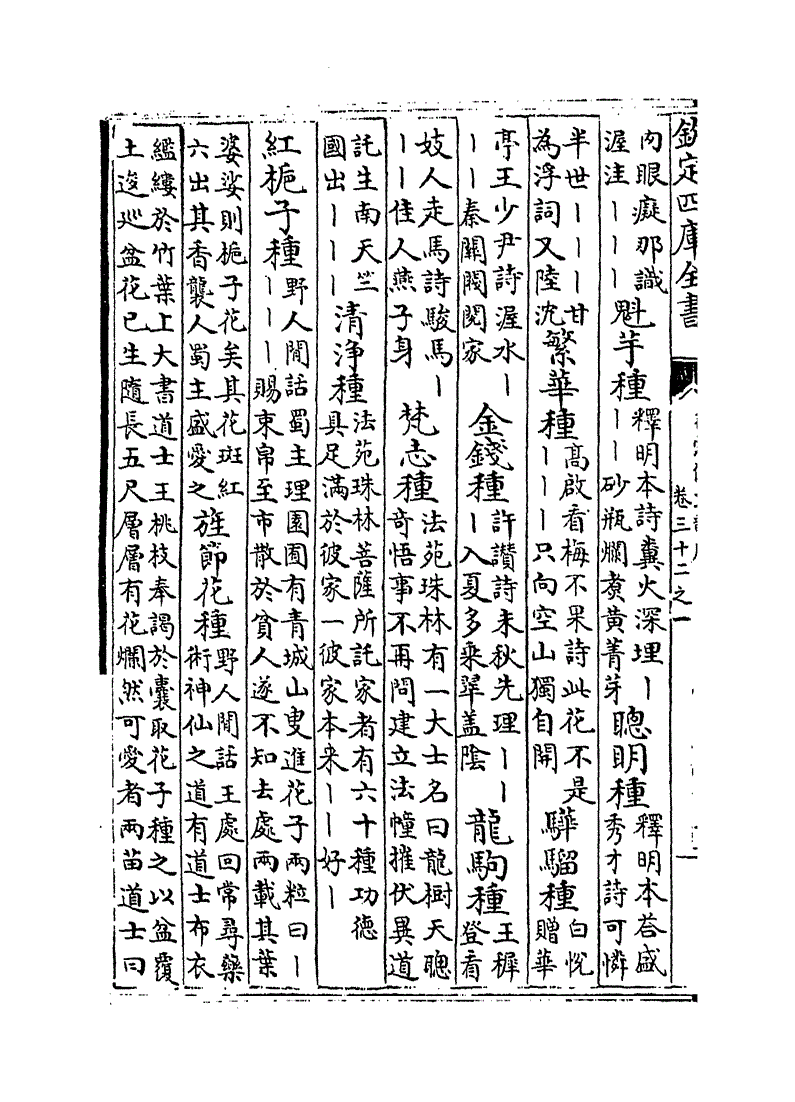 欽定四庫全書
卷三十二之一
肉眼癡那識渥洼｜｜｜魁芋種釋明本詩糞火深埋｜｜｜砂瓶爛煮黄菁芽聰明種釋明本荅盛秀才詩可憐
半世｜｜｜甘為浮詞又陸沈繁華種高啟看梅不果詩此花不是｜｜｜只向空山獨自開驊騮種白悅贈華
亭王少尹詩渥水｜｜｜秦關閥閱家金錢種許讚詩未秋先理｜｜｜入夏多乘翠盖陰龍駒種王穉登看
妓人走馬詩駿馬｜｜｜佳人燕子身梵志種法苑珠林有一大士名曰龍樹天聰奇悟事不再問建立法幢摧伏異道
託生南天竺國出｜｜｜清浄種法苑珠林菩薩所託家者有六十種功德具足滿於彼家一彼家本来｜｜好｜
紅栀子種野人閒話蜀主理園囿有青城山叟進花子兩粒曰｜｜｜｜賜束帛至市散於貧人遂不知去處兩載其葉
婆娑則栀子花矣其花斑紅六出其香襲人蜀主盛愛之旌節花種野人閒話王處回常尋藥術神仙之道有道士布衣
繿縷於竹葉上大書道士王桃枝奉謁於囊取花子種之以盆覆土逡巡盆花已生随長五尺層層有花爛然可愛者兩苗道士曰